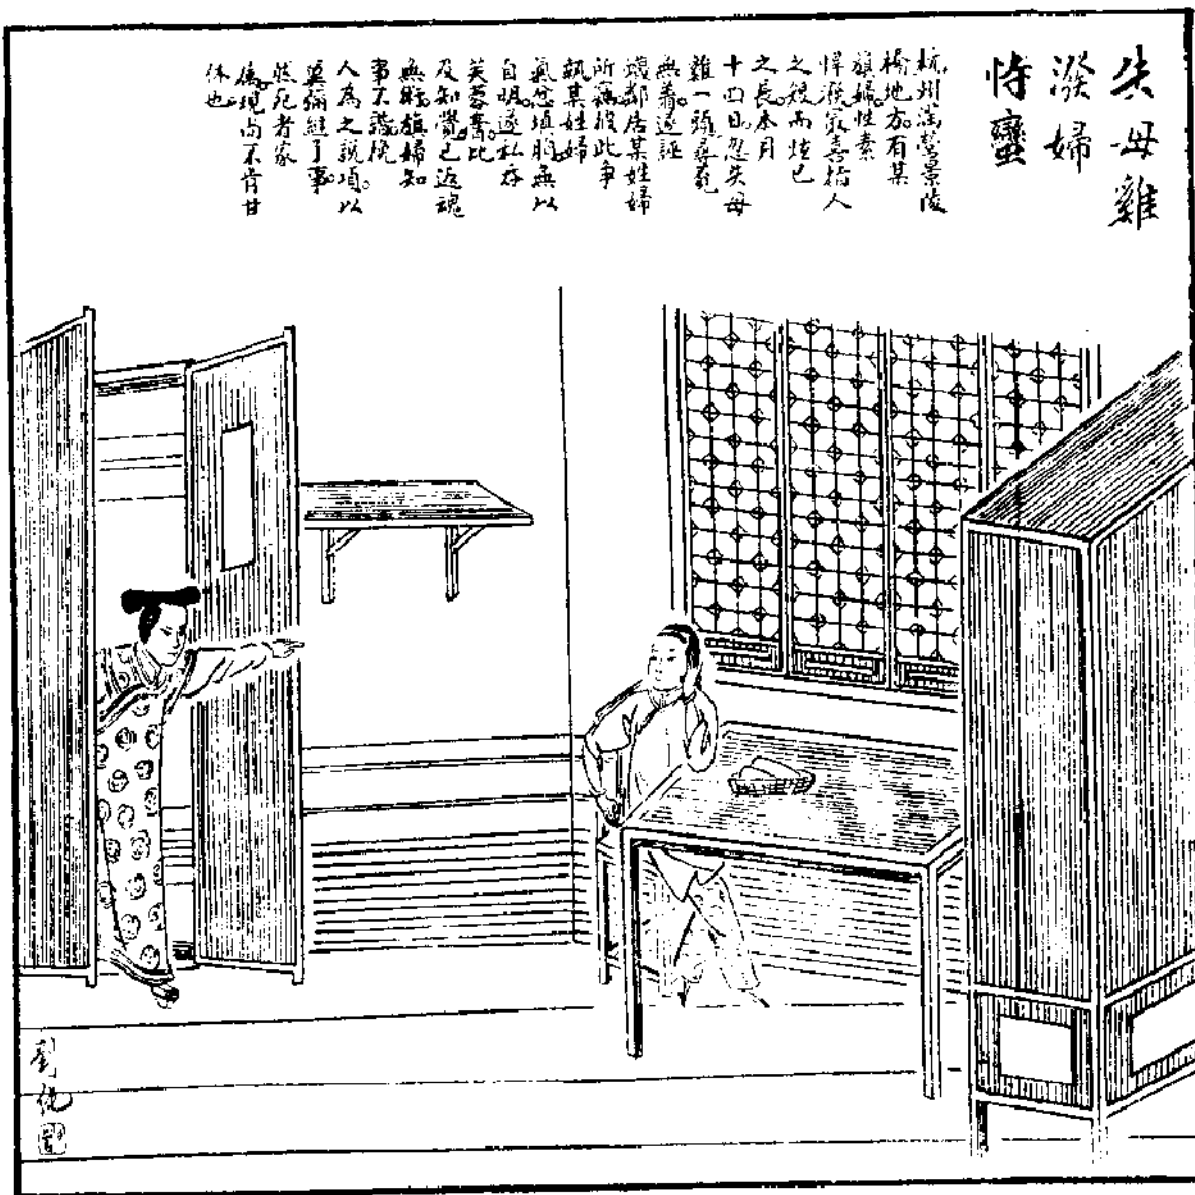 失母雞
潑婦
恃蠻
杭州滿營景陵
橋地方有某
旗婦性素
悍潑最喜指人
之短而炫己
之長本月
十四日忽失母
雞一頭尋覓
無着遂誣
衊鄰居某姓婦
所竊彼此爭
執某姓婦
氣忿填胸無以
自明遂私吞
芙蓉膏比
及知覺已返魂
無術旗婦知
事不諧挽
人為之說項以
冀彌縫了事
然死者家
屬現尚不肯甘
休也
劉純